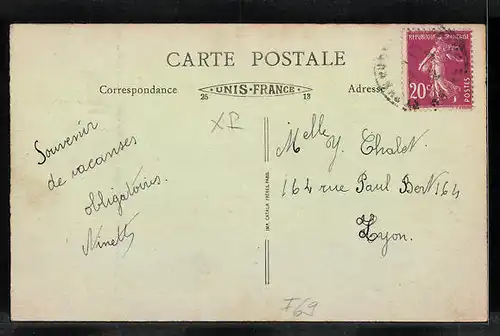 CARTE POSTALE
Correspondance
UNIS-FRANCE
25 13
Adresse
REPUBLIQUE FRANÇAISE
20c
POSTES
XI
Souvenir
de vacanses
obligatoires.
Ninett
Melle Y. Chalet.
164 rue Paul Bert 164
Lyon.
IMP. CATALA FRÈRES, PARIS
F69